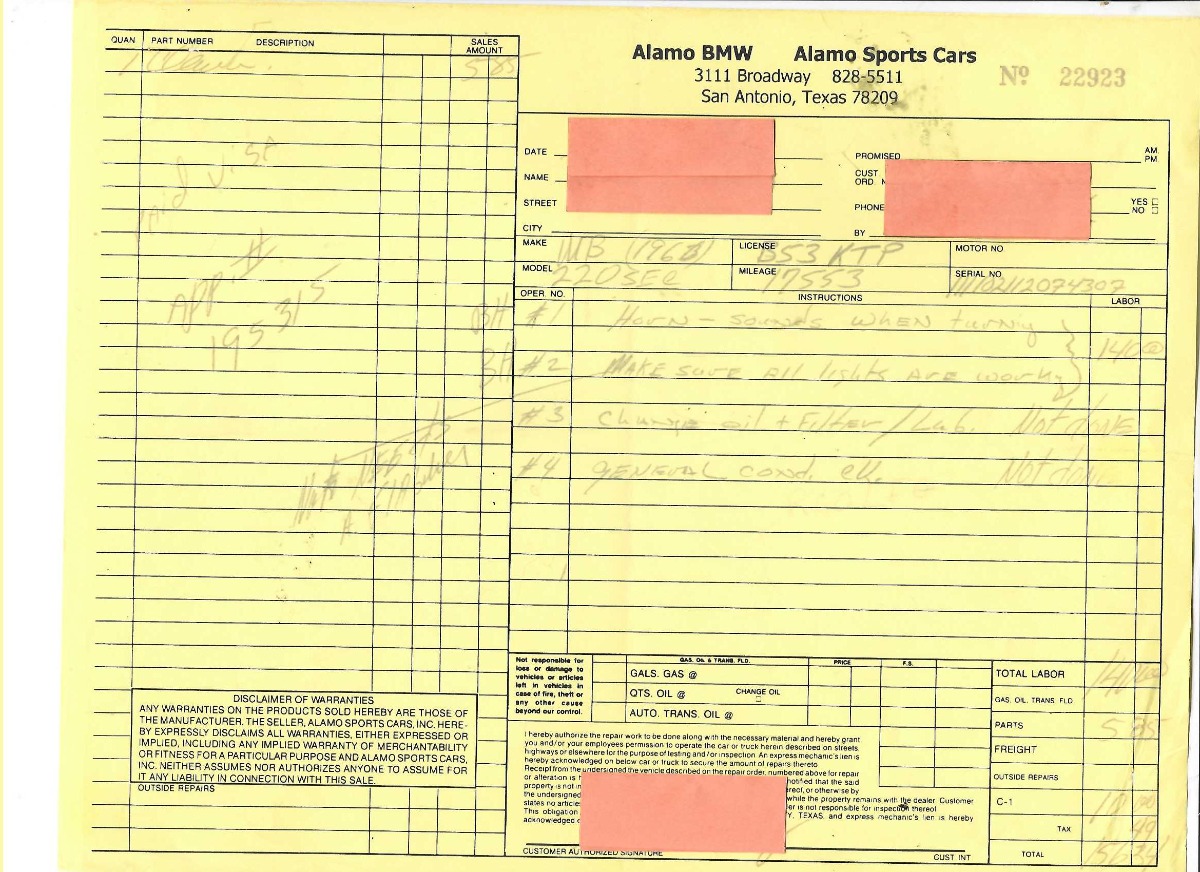 QUAN PART NUMBER DESCRIPTION SALES AMOUNT
1 5 85
Paid
APP #
195315
Alamo BMW Alamo Sports Cars
3111 Broadway 828-5511
San Antonio, Texas 78209
Nº 22923
DATE
NAME
STREET
CITY
PROMISED AM. PM.
CUST ORD. N
PHONE YES □ NO □
BY
MAKE MB LICENSE 853 KTP MOTOR NO
MODEL 220SEC MILEAGE 17553 SERIAL NO
OPER. NO. INSTRUCTIONS LABOR
BH #1 Horn - sounds when turning
140 00
BH #2 Make sure all lights are workg
#3 Change oil + Filter / Lub. Not done
#4 General cond. ck. Not done
Not responsible for
loss or damage to
vehicles or articles
left in vehicles in
case of fire, theft or
any other cause
beyond our control.
GAS, OIL & TRANS. FLD. PRICE F.S.
GALS. GAS @
QTS. OIL @ CHANGE OIL □
AUTO. TRANS. OIL @
I hereby authorize the repair work to be done along with the necessary material and hereby grant
you and/or your employees permission to operate the car or truck herein described on streets,
highways or elsewhere for the purpose of testing and/or inspection. An express mechanic's lien is
hereby acknowledged on below car or truck to secure the amount of repairs thereto
Receipt from the undersigned the vehicle described on the repair order, numbered above for repair
or alteration is h notified that the said
property is not in ereof, or otherwise by
the undersigned while the property remains with the dealer. Customer
states no articles er is not responsible for inspection thereof
This obligation Y, TEXAS, and express mechanic's lien is hereby
acknowledged
CUSTOMER AUTHORIZED SIGNATURE CUST INT
TOTAL LABOR 140 00
GAS, OIL, TRANS FLD
PARTS 5 85
FREIGHT
OUTSIDE REPAIRS
C-1
TAX 49
TOTAL 156 34
DISCLAIMER OF WARRANTIES
ANY WARRANTIES ON THE PRODUCTS SOLD HEREBY ARE THOSE OF
THE MANUFACTURER. THE SELLER, ALAMO SPORTS CARS, INC. HERE-
BY EXPRESSLY DISCLAIMS ALL WARRANTIES, EITHER EXPRESSED OR
IMPLIED, INCLUDING ANY IMPLIED WARRANTY OF MERCHANTABILITY
OR FITNESS FOR A PARTICULAR PURPOSE AND ALAMO SPORTS CARS,
INC. NEITHER ASSUMES NOR AUTHORIZES ANYONE TO ASSUME FOR
IT ANY LIABILITY IN CONNECTION WITH THIS SALE.
OUTSIDE REPAIRS